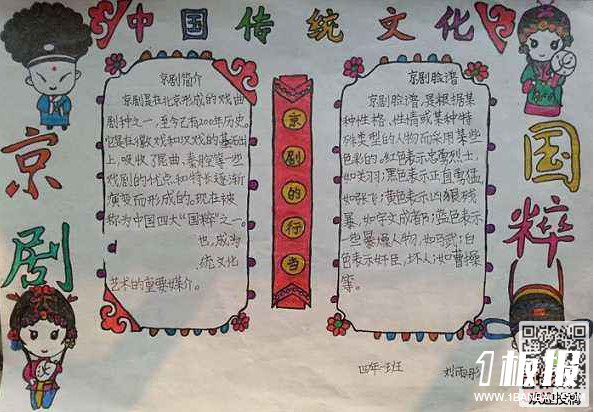 中国传统文化
京剧
国粹
京剧简介
京剧是在北京形成的戏曲
剧种之一,至今已有200年历史。
它是在徽戏和汉戏的基础
上,吸收了昆曲、秦腔等一些
戏剧的优点和特长逐渐
演变而形成的。现在被
称为中国四大“国粹”之一。
也,成为
统文化
艺术的重要媒介。
京剧的行当
京剧脸谱
京剧脸谱,是根据某
种性格、性情或某种特
殊类型的人物而采用某些
色彩的。红色表示忠勇烈士,
如关羽;黑色表示正直勇猛
如张飞;黄色表示凶狠残
暴,如宇文成者节;蓝色表示
一些暴燥人物,如马武;白
色表示奸臣、坏人,如曹操
等。
四年一班
刘雨彤
1板报
WWW.1BANBAO.COM